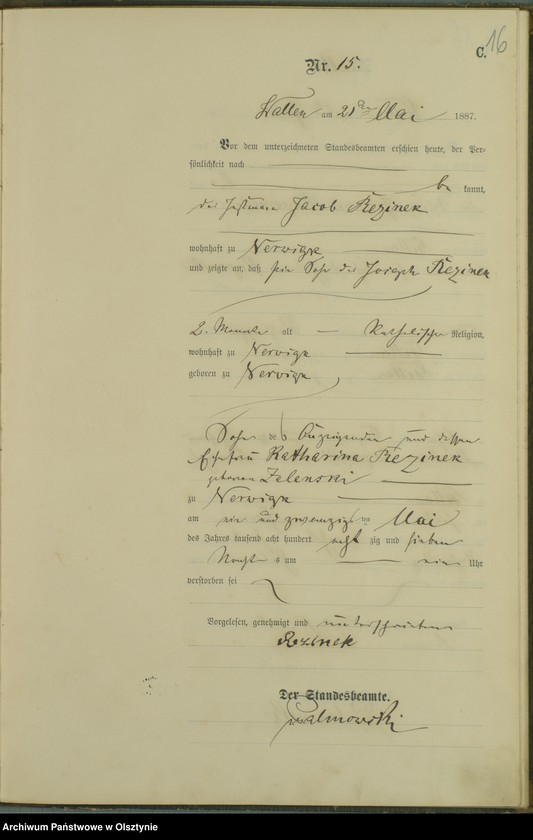 16
C.
Nr. 15.
Wallen am 21ten Mai 1887.
Vor dem unterzeichneten Standesbeamten erschien heute, der Per-
sönlichkeit nach
be kannt,
der Jacob Rezinek
wohnhaft zu Nerwigk
und zeigte an, daß sein Sohn der Joseph Rezinek
2. Monate alt Katholischer Religion,
wohnhaft zu Nerwigk
geboren zu Nerwigk
Sohn des Anzeigenden und dessen
Ehefrau Katharina Rezinek
geborenen Zelenski
zu Nerwigk
am ein und zwanzigsten Mai
des Jahres tausend acht hundert acht zig und sieben
Nachts um ein Uhr
verstorben sei
Vorgelesen, genehmigt und unterschrieben
Rezinek
Der Standesbeamte.
Palmowski
Archiwum Państwowe w Olsztynie